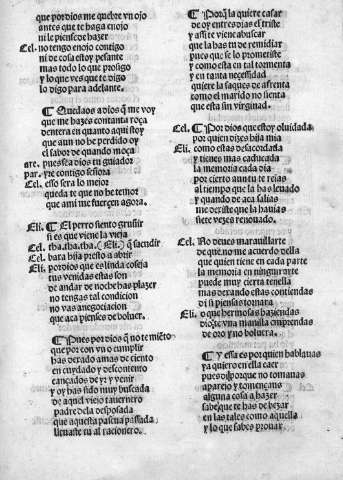 que por dios me quebre vn ojo
antes que te haga enojo
ni le piense de hazer
Cel. no tengo enojo contigo
ni de cosa estoy pesante
mas todo lo que prosigo
y lo que ves que te digo
lo digo para adelante.
¶ Quedaos a dios q̃ me voy
que me hazes con tanta roça
dentera en quanto aqui stoy
que aun no he perdido oy
el sabor de quando moça
are. pues vea dios tu guiador
par. yre contigo señora
Cel. esso sera lo mejor
queda te que no he temor
que a mi me fuercen agora.
Eli. ¶ El perro siento gruñir
si es que viene la vieja
Cel. tha. tha. tha. (Eli. q̃ sacudir
Cel. bara hija presto a abrir
Eli. por dios que es linda coseja
tus venidas estas son
de andar de noche has plazer
no tengas tal condicion
no vas a negociacion
que aca pienses de boluer.
¶ Pues por dios q̃ no te miẽto
que por con vno cumplir
has dexado a mas de ciento
en cuydado y descontento
cançados de yr y venir
y oy has sido muy buscada
de aquel viejo tauernero
padre de la desposada
que aquesta pascua passada
lleuaste tu al racionero.
¶ Porq̃ la quiere casar
de oy en tres dias el triste
y assi te viene a buscar
que la has tu de remidiar
pues que se lo prometiste
y como esta en tal tormenta
y en tanta necessidad
quiere la saques de afrenta
como el marido no sienta
que esta sin virginad.
Cel. ¶ Por dios que estoy oluidada
por quien dizes hija mia
Eli. como estas desacordada
y tienes mas caducada
la memoria cada dia
por cierto aun tu te reias
al tiempo que la has leuado
y quando de aca salias
me dexiste que la hauias
siete vezes renouado.
Cel. No deues marauillarte
de que no me acuerdo della
que quien tiene en cada parte
la memoria en ningun arte
puede muy cierta tenella
mas dexando estas contiendas
di si piensa tornara
Eli. o que hermosas haziendas
dioq̃te vna manilla en prendas
de oro y no boluera.
¶ Y essa es por quien hablauas
ya quiero en ella caer
pues di porque no tomauas
aparejo y començaus
alguna cosa a hazer
sabes que te has de bezar
en las tales como aquella
y lo que sabes prouar